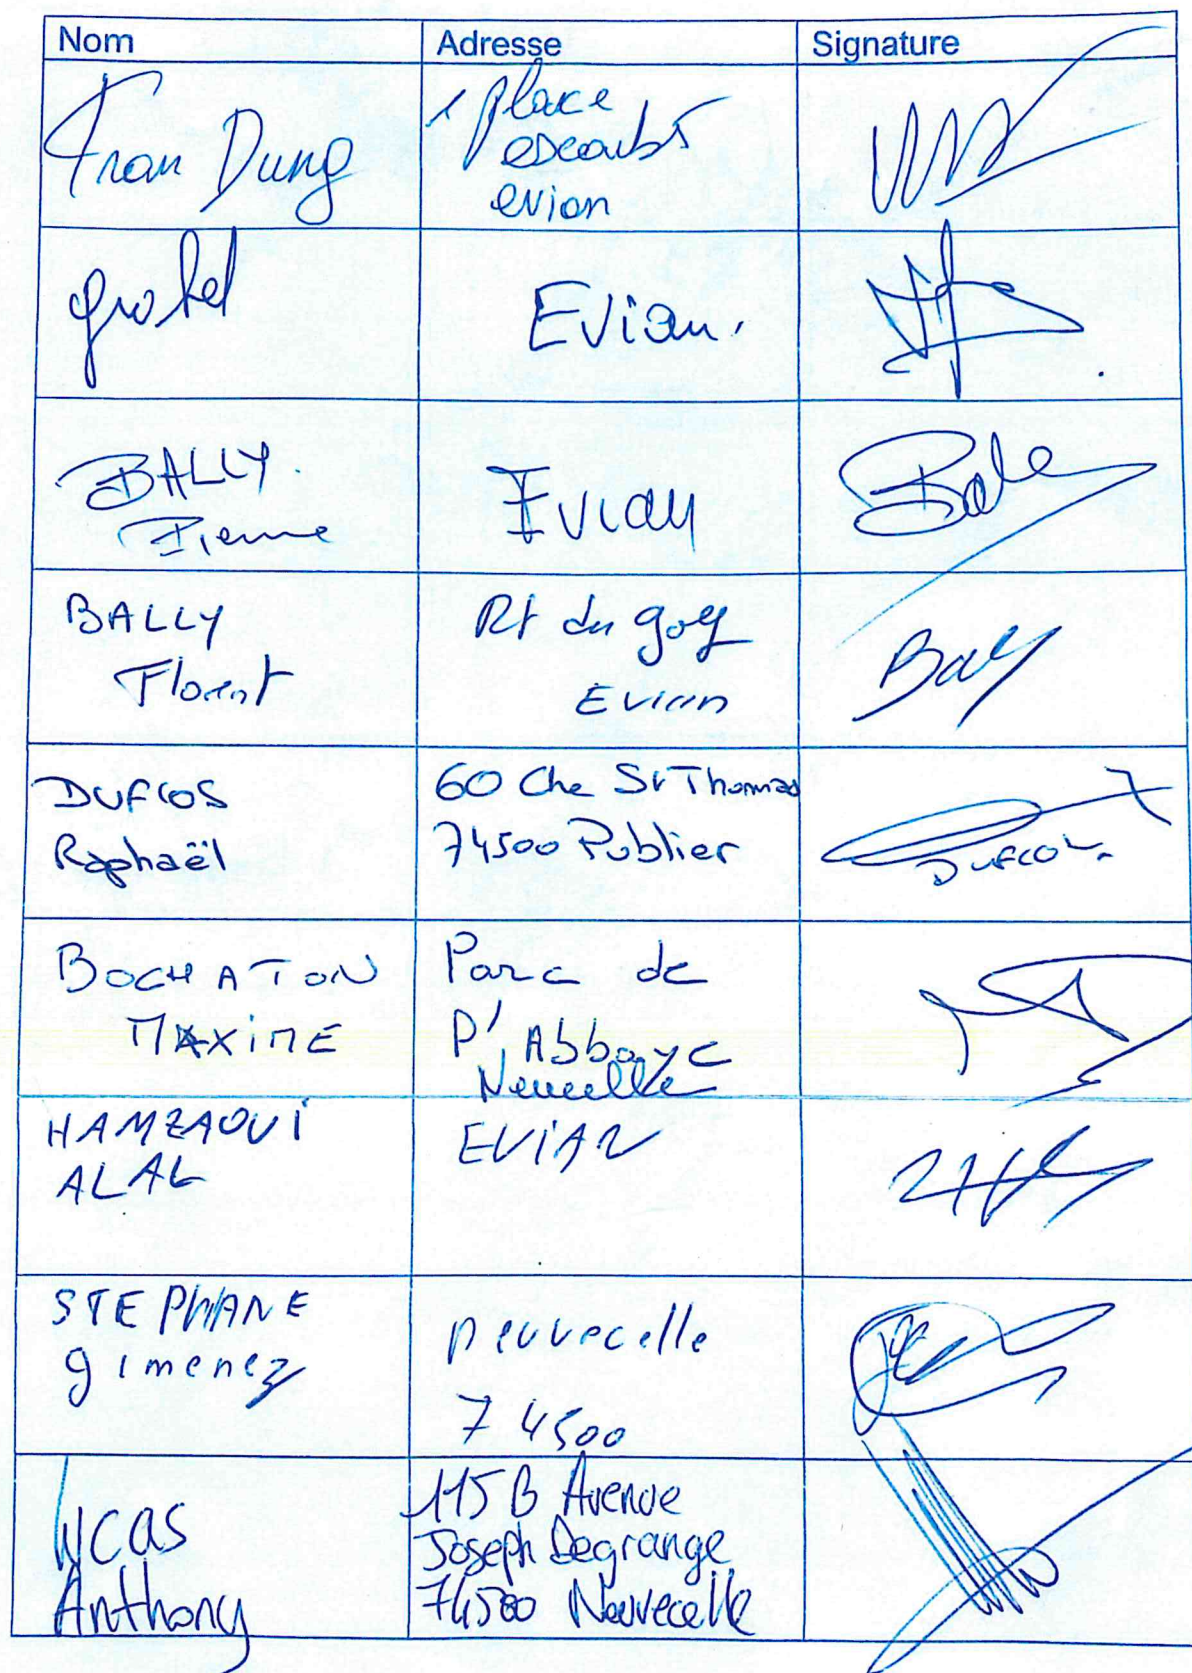 Nom Adresse Signature
Tran Dung
1 place
escoubès
evian
grobel
Evian.
BALLY.
Pierre
Evian
BALLY
Florent
Rt du golf
Evian
Bally
DUFLOS
Raphaël
60 Che St Thomas
74500 Publier
DUFLOS
BOCHATON
MAXIME
Parc de
l'Abbaye
Neuvecelle
HAMZAOUI
ALAL
EVIAN
STEPHANE
gimenez
neuvecelle
74500
LUCAS
Anthony
115 B Avenue
Joseph Degrange
74500 Neuvecelle